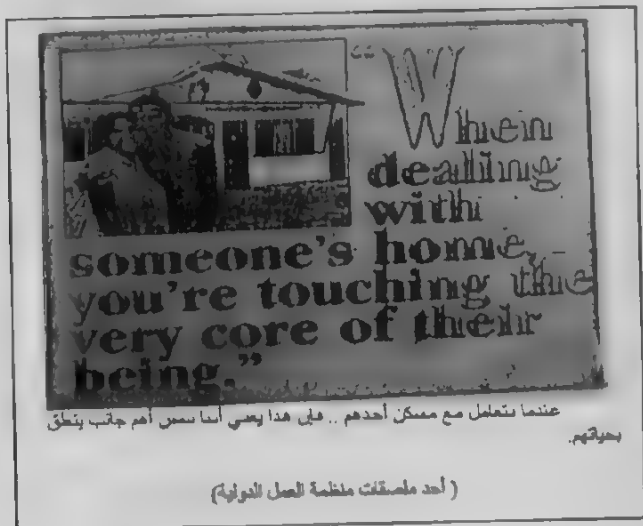 “When
dealing
with
someone's home,
you're touching the
very core of their
being.”
عندما نتعامل مع مسكن أحدهم .. فإن هذا يعني أننا نمس أهم جانب يتعلق
بحياتهم.
( أحد ملصقات منظمة العمل الدولية)